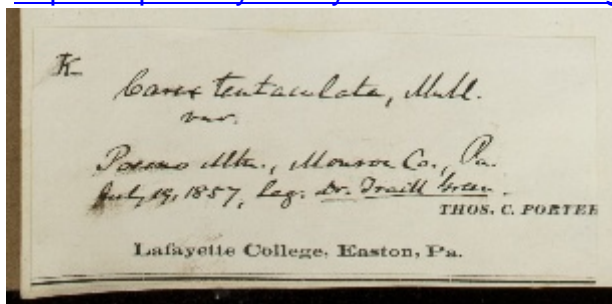 K
Carex tentaculata, Muhl.
var.
Pocono Mtn., Monroe Co., Pa.
July 19, 1857, leg. Dr. Traill Green.
THOS. C. PORTER
Lafayette College, Easton, Pa.